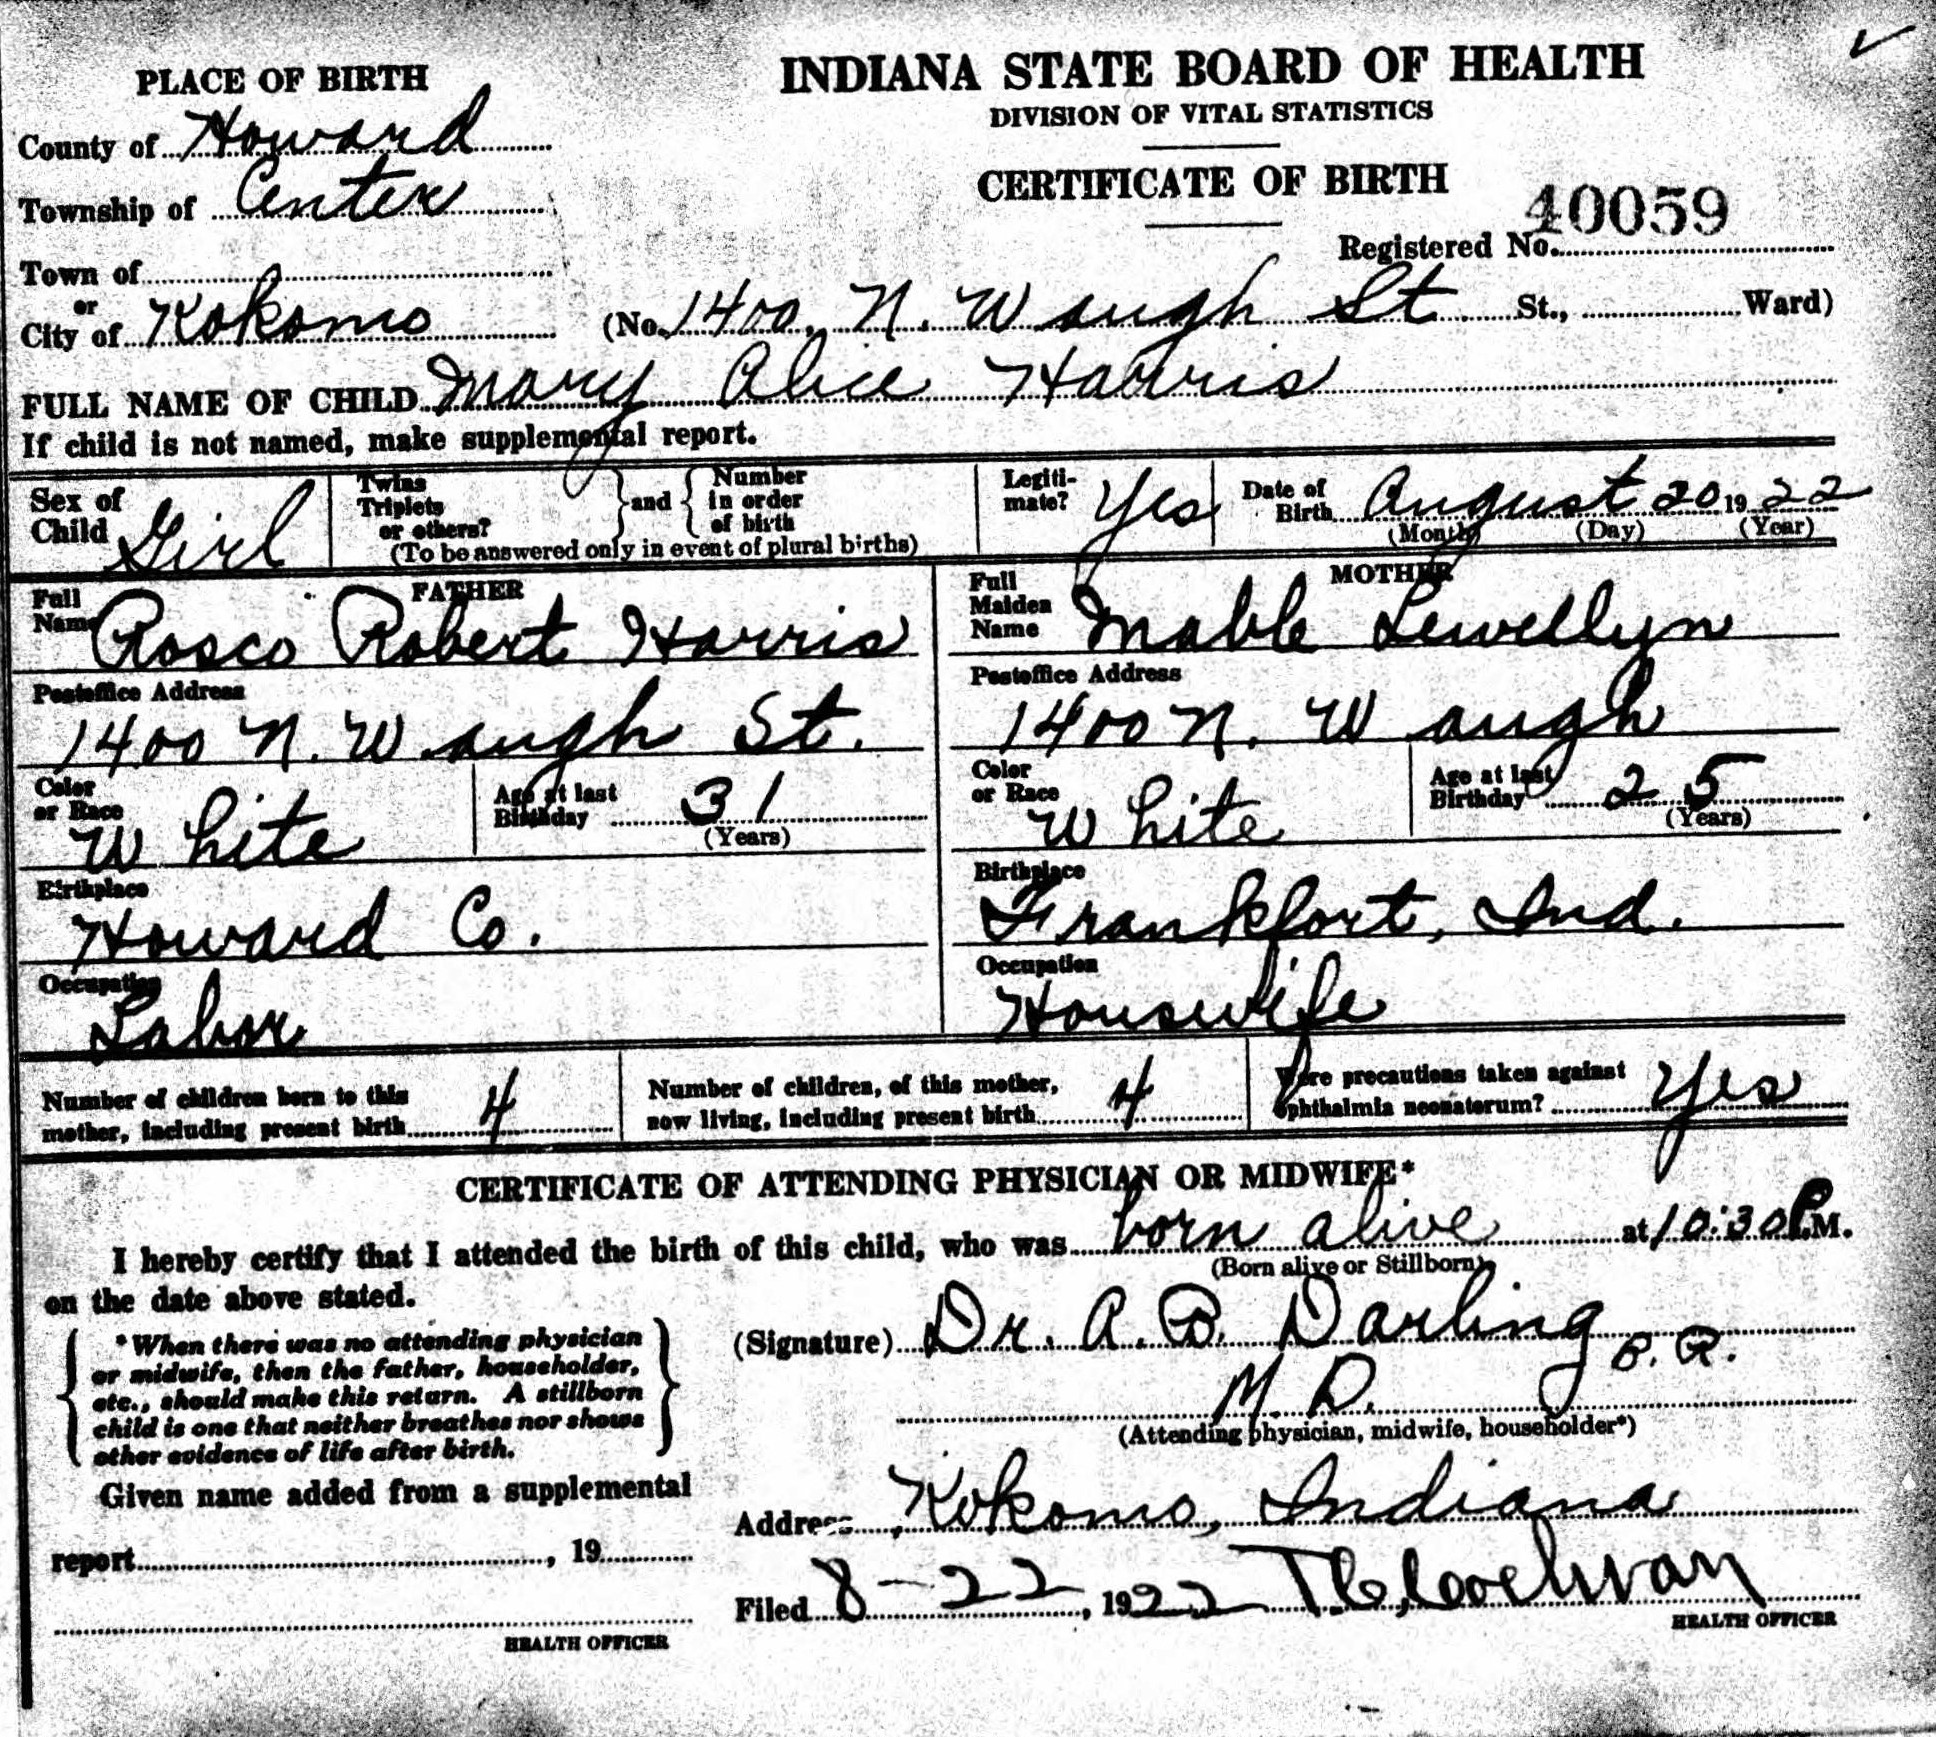 PLACE OF BIRTH
INDIANA STATE BOARD OF HEALTH
DIVISION OF VITAL STATISTICS
CERTIFICATE OF BIRTH
County of Howard
Township of Center
Town of
or
City of Kokomo
40059
Registered No.
(No. 1400, N. Waugh St St., Ward)
FULL NAME OF CHILD Mary Alice Harris
If child is not named, make supplemental report.
Sex of Child Girl
Twins
Triplets
or others?
and
Number
in order
of birth
(To be answered only in event of plural births)
Legiti-
mate? Yes
Date of
Birth August 20 1922
(Month) (Day) (Year)
FATHER
Full
Name Rosco Robert Harris
Postoffice Address
1400 N. Waugh St.
Color
or Race
White
Age at last
Birthday 31
(Years)
Birthplace
Howard Co.
Occupation
Labor
MOTHER
Full
Maiden
Name Mable Lewellyn
Postoffice Address
1400 N. Waugh
Color
or Race
White
Age at last
Birthday 25
(Years)
Birthplace
Frankfort, Ind.
Occupation
Houswife
Number of children born to this
mother, including present birth 4
Number of children, of this mother,
now living, including present birth 4
Were precautions taken against
ophthalmia neonatorum? Yes
CERTIFICATE OF ATTENDING PHYSICIAN OR MIDWIFE*
I hereby certify that I attended the birth of this child, who was born alive at 10:30 P.M.
(Born alive or Stillborn)
on the date above stated.
*When there was no attending physician
or midwife, then the father, householder,
etc., should make this return. A stillborn
child is one that neither breathes nor shows
other evidence of life after birth.
(Signature) Dr. A. B. Darling
M. D.
(Attending physician, midwife, householder*)
Given name added from a supplemental
report , 19
HEALTH OFFICER
Address Kokomo, Indiana
Filed 8-22, 1922
HEALTH OFFICER